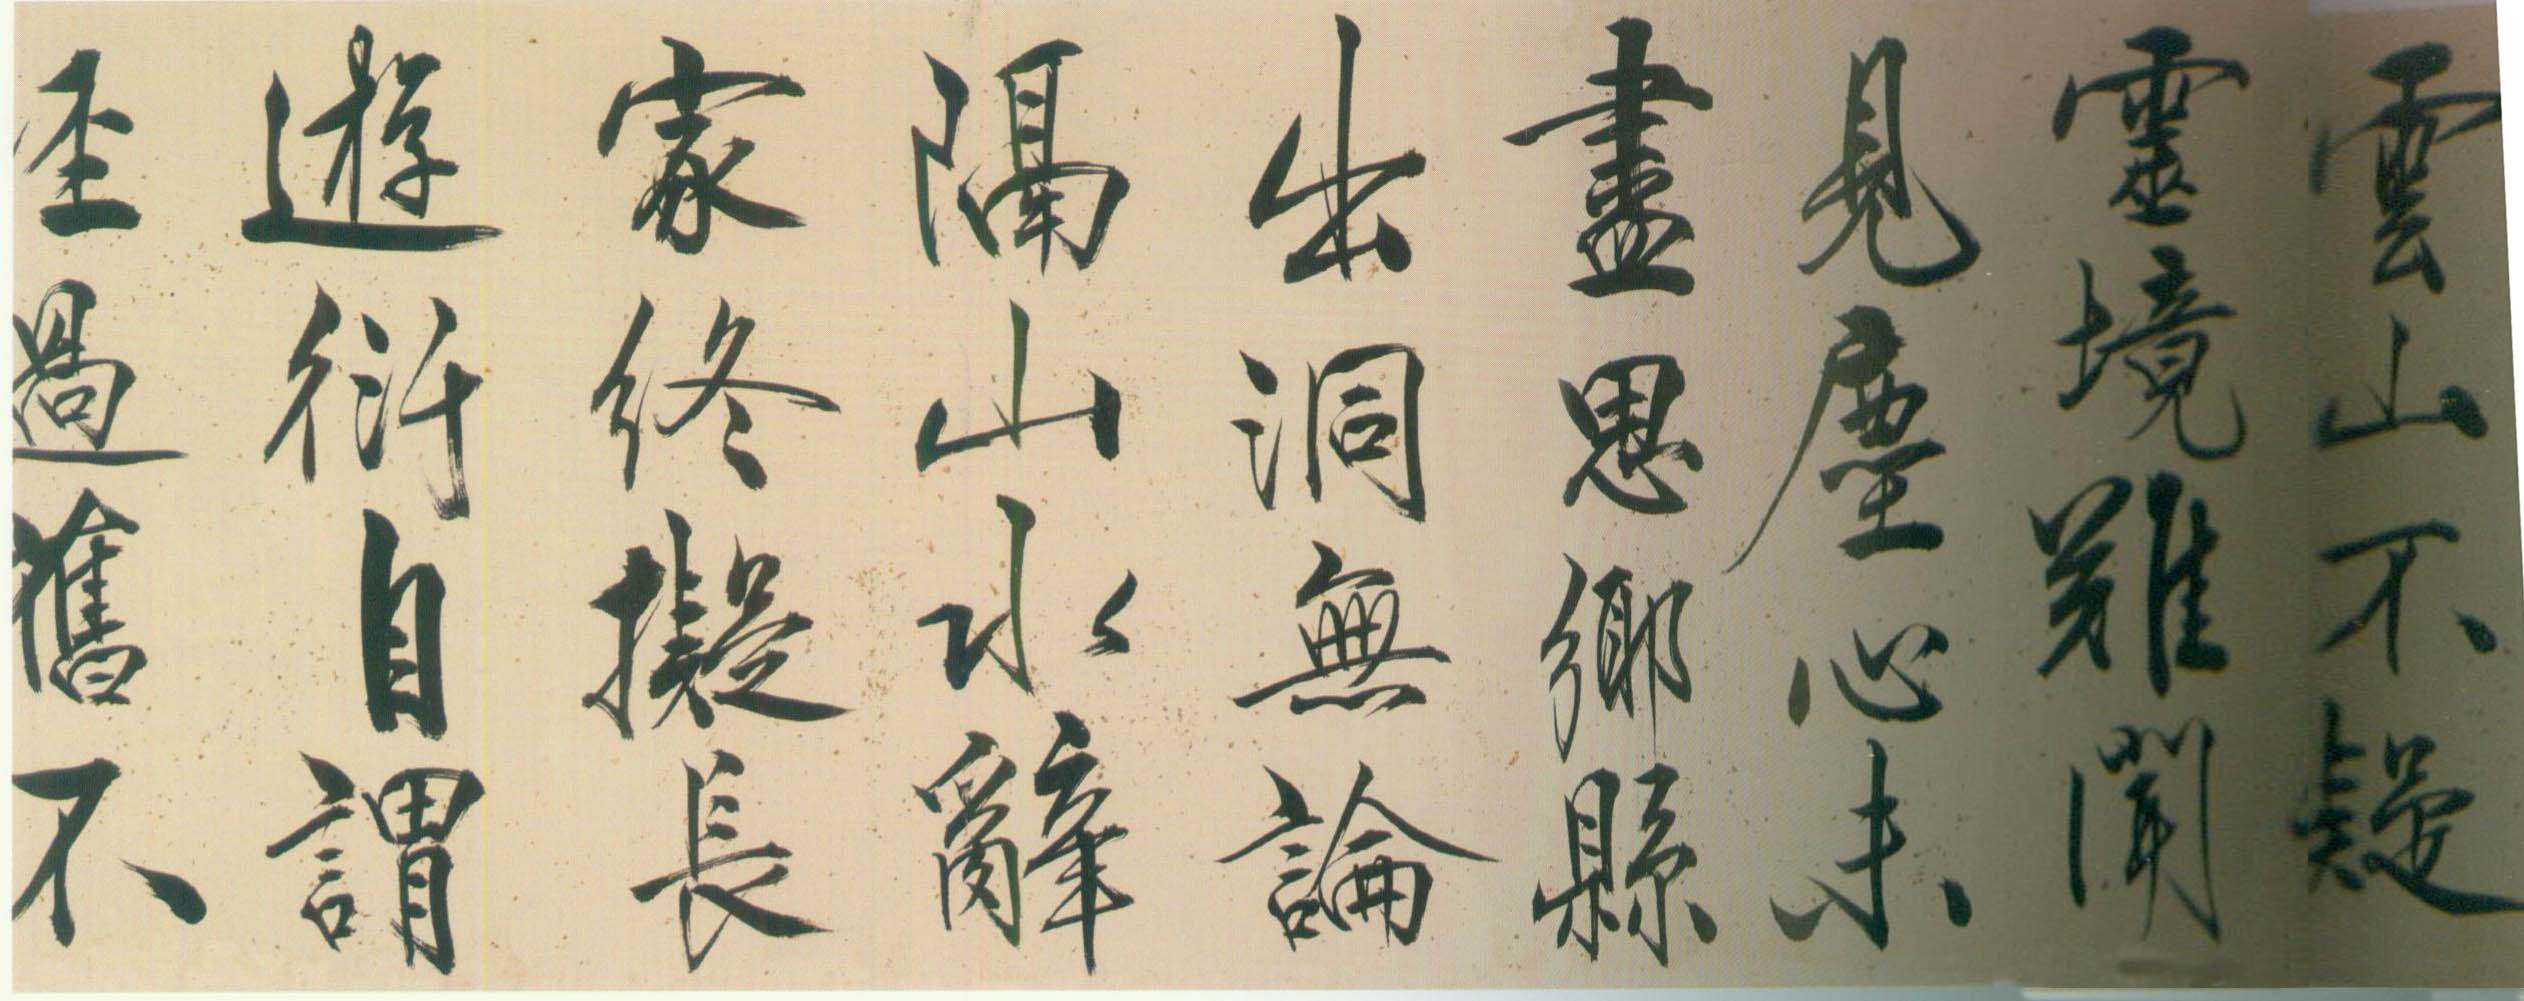 雲山不疑
靈境難聞
見塵心未
盡思鄉縣
出洞無論
隔山水辭
家終擬長
遊衍自謂
𡋲過舊不